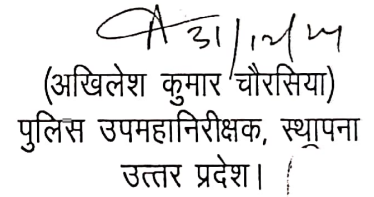 31/12/24
(अखिलेश कुमार चौरसिया)
पुलिस उपमहानिरीक्षक, स्थापना
उत्तर प्रदेश।